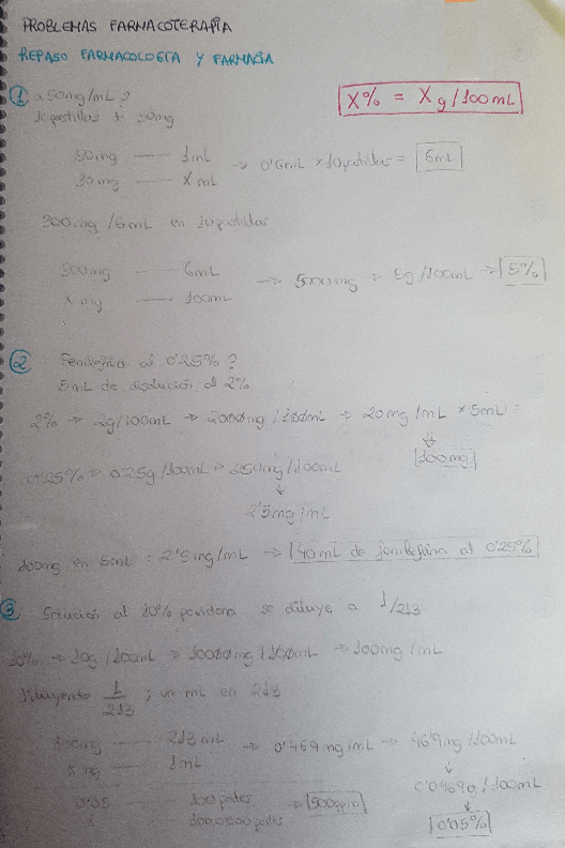 PROBLEMAS FARMACOTERAPIA
REPASO FARMACOLOGÍA Y FARMACIA
X% = Xg/100mL
① 50mg/mL?
10pastillas + 30mg
50mg — 1mL → 0'6mL × 10pastillas = 6mL
30mg — X mL
300mg /6mL en 10pastillas
300mg — 6mL → 5000mg → 5g/100mL → 5%
X mg — 100mL
② Fenilefrina al 0'25%?
5mL de disolución al 2%
2% → 2g/100mL → 2000mg/100mL → 20mg/mL × 5mL =
100mg
0'25% → 0'25g/100mL → 250mg/100mL
2'5mg/mL
100mg en 5mL : 2'5mg/mL → 40mL de fenilefrina al 0'25%
③ Solución al 10% povidona se diluye a 1/213
10% → 10g/100mL → 10000mg/100mL → 100mg/mL
Diluyendo 1/213 ; un mL en 213
100mg — 213mL → 0'469mg/mL → 46'9mg/100mL
X mg — 1mL
0'0469g/100mL
0'05 — 100partes → 500ppm
X — 1000000partes
0'05%